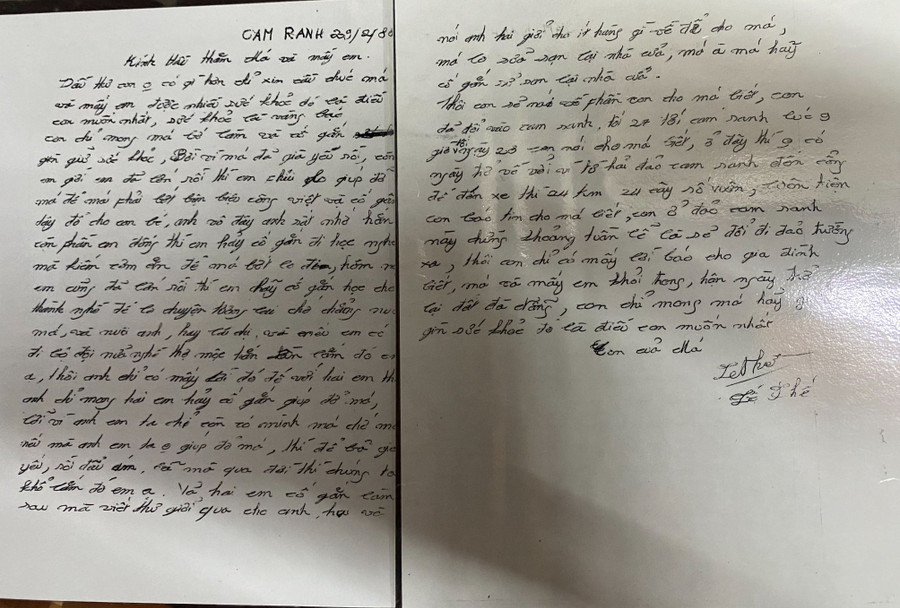 CAM RANH 29/2/88
Kính thư thăm Má và mấy em.
Đầu thư con o có gì hơn chỉ xin cầu chúc má
và mấy em được nhiều sức khỏe đó là điều
con muốn nhất, sức khỏe là vàng bạc
con chỉ mong má bớt lo và cố gắn
gìn giữ sức khỏe, Bởi vì má đã già yếu rồi, còn
em gái đã lớn rồi thì em phải giúp đỡ
má để má phải bớt bận biệu công việt và cố gắn
dậy đỗ cho con bé, anh vô đây anh rất nhớ
còn phần em đông thì em hãy cố gắn đi học nghề
mà kiếm cơm ăn để má bớt lo
em cũng đã lớn rồi thì em hãy cố gắn học cho
thành nghề để lo chuyện tương lai chớ chẳng
má, và nuôi anh, hay và nếu em có
đi bộ đội nữa nghề thợ mộc
a, thôi anh chỉ có mấy lời đó để với hai em thì
anh chỉ mong hai em hãy cố gắn giúp đỡ má,
bởi vì anh em ta chỉ còn có mình má chớ
nếu mà anh em ta o giúp đỡ má, thì để
yếu, rồi má qua đời thì chúng ta
khổ lắm đó em a. Và hai em cố gắn làm
sau mà viết thư gởi qua cho anh,
nói anh hai gởi cho ít hàng gì về để cho má,
má lo sửa sạn lại nhà cửa, má à má hãy
cố gắn sử sạn lại nhà cửa.
Thôi con sẽ nói về phần con cho má biết, con
đã đổi vào cam ranh, tối 27 tới cam ranh lúc 9
giờ tối ngày 28 con nói cho má biết, ở đây thì o có
ngày trở về bởi vì từ hải đảo cam ranh đến cổng
để đón xe thì 24 km 24 cây số vườn, luôn tiện
con báo tin cho má biết, con ở đảo cam ranh
này chừng khoảng tuần lễ là sẽ đổi đi đảo trường
xa, thôi con chỉ có mấy lời báo cho gia đình
biết, má và mấy em khỏi trông, hận ngày trở
lại đất đà nẵng, con chỉ mong má hãy
gìn sức khỏe đó là điều con muốn nhất
Con của Má
Lê Thế